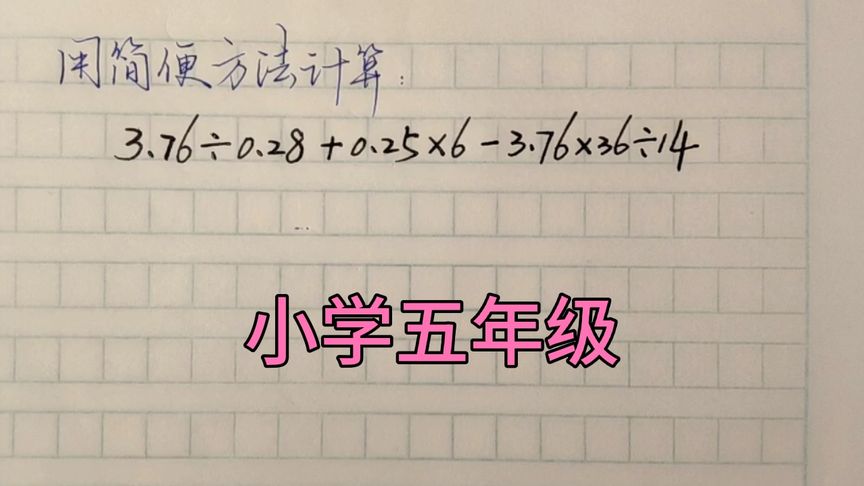 用简便方法计算:
3.76÷0.28+0.25×6-3.76×36÷14
小学五年级